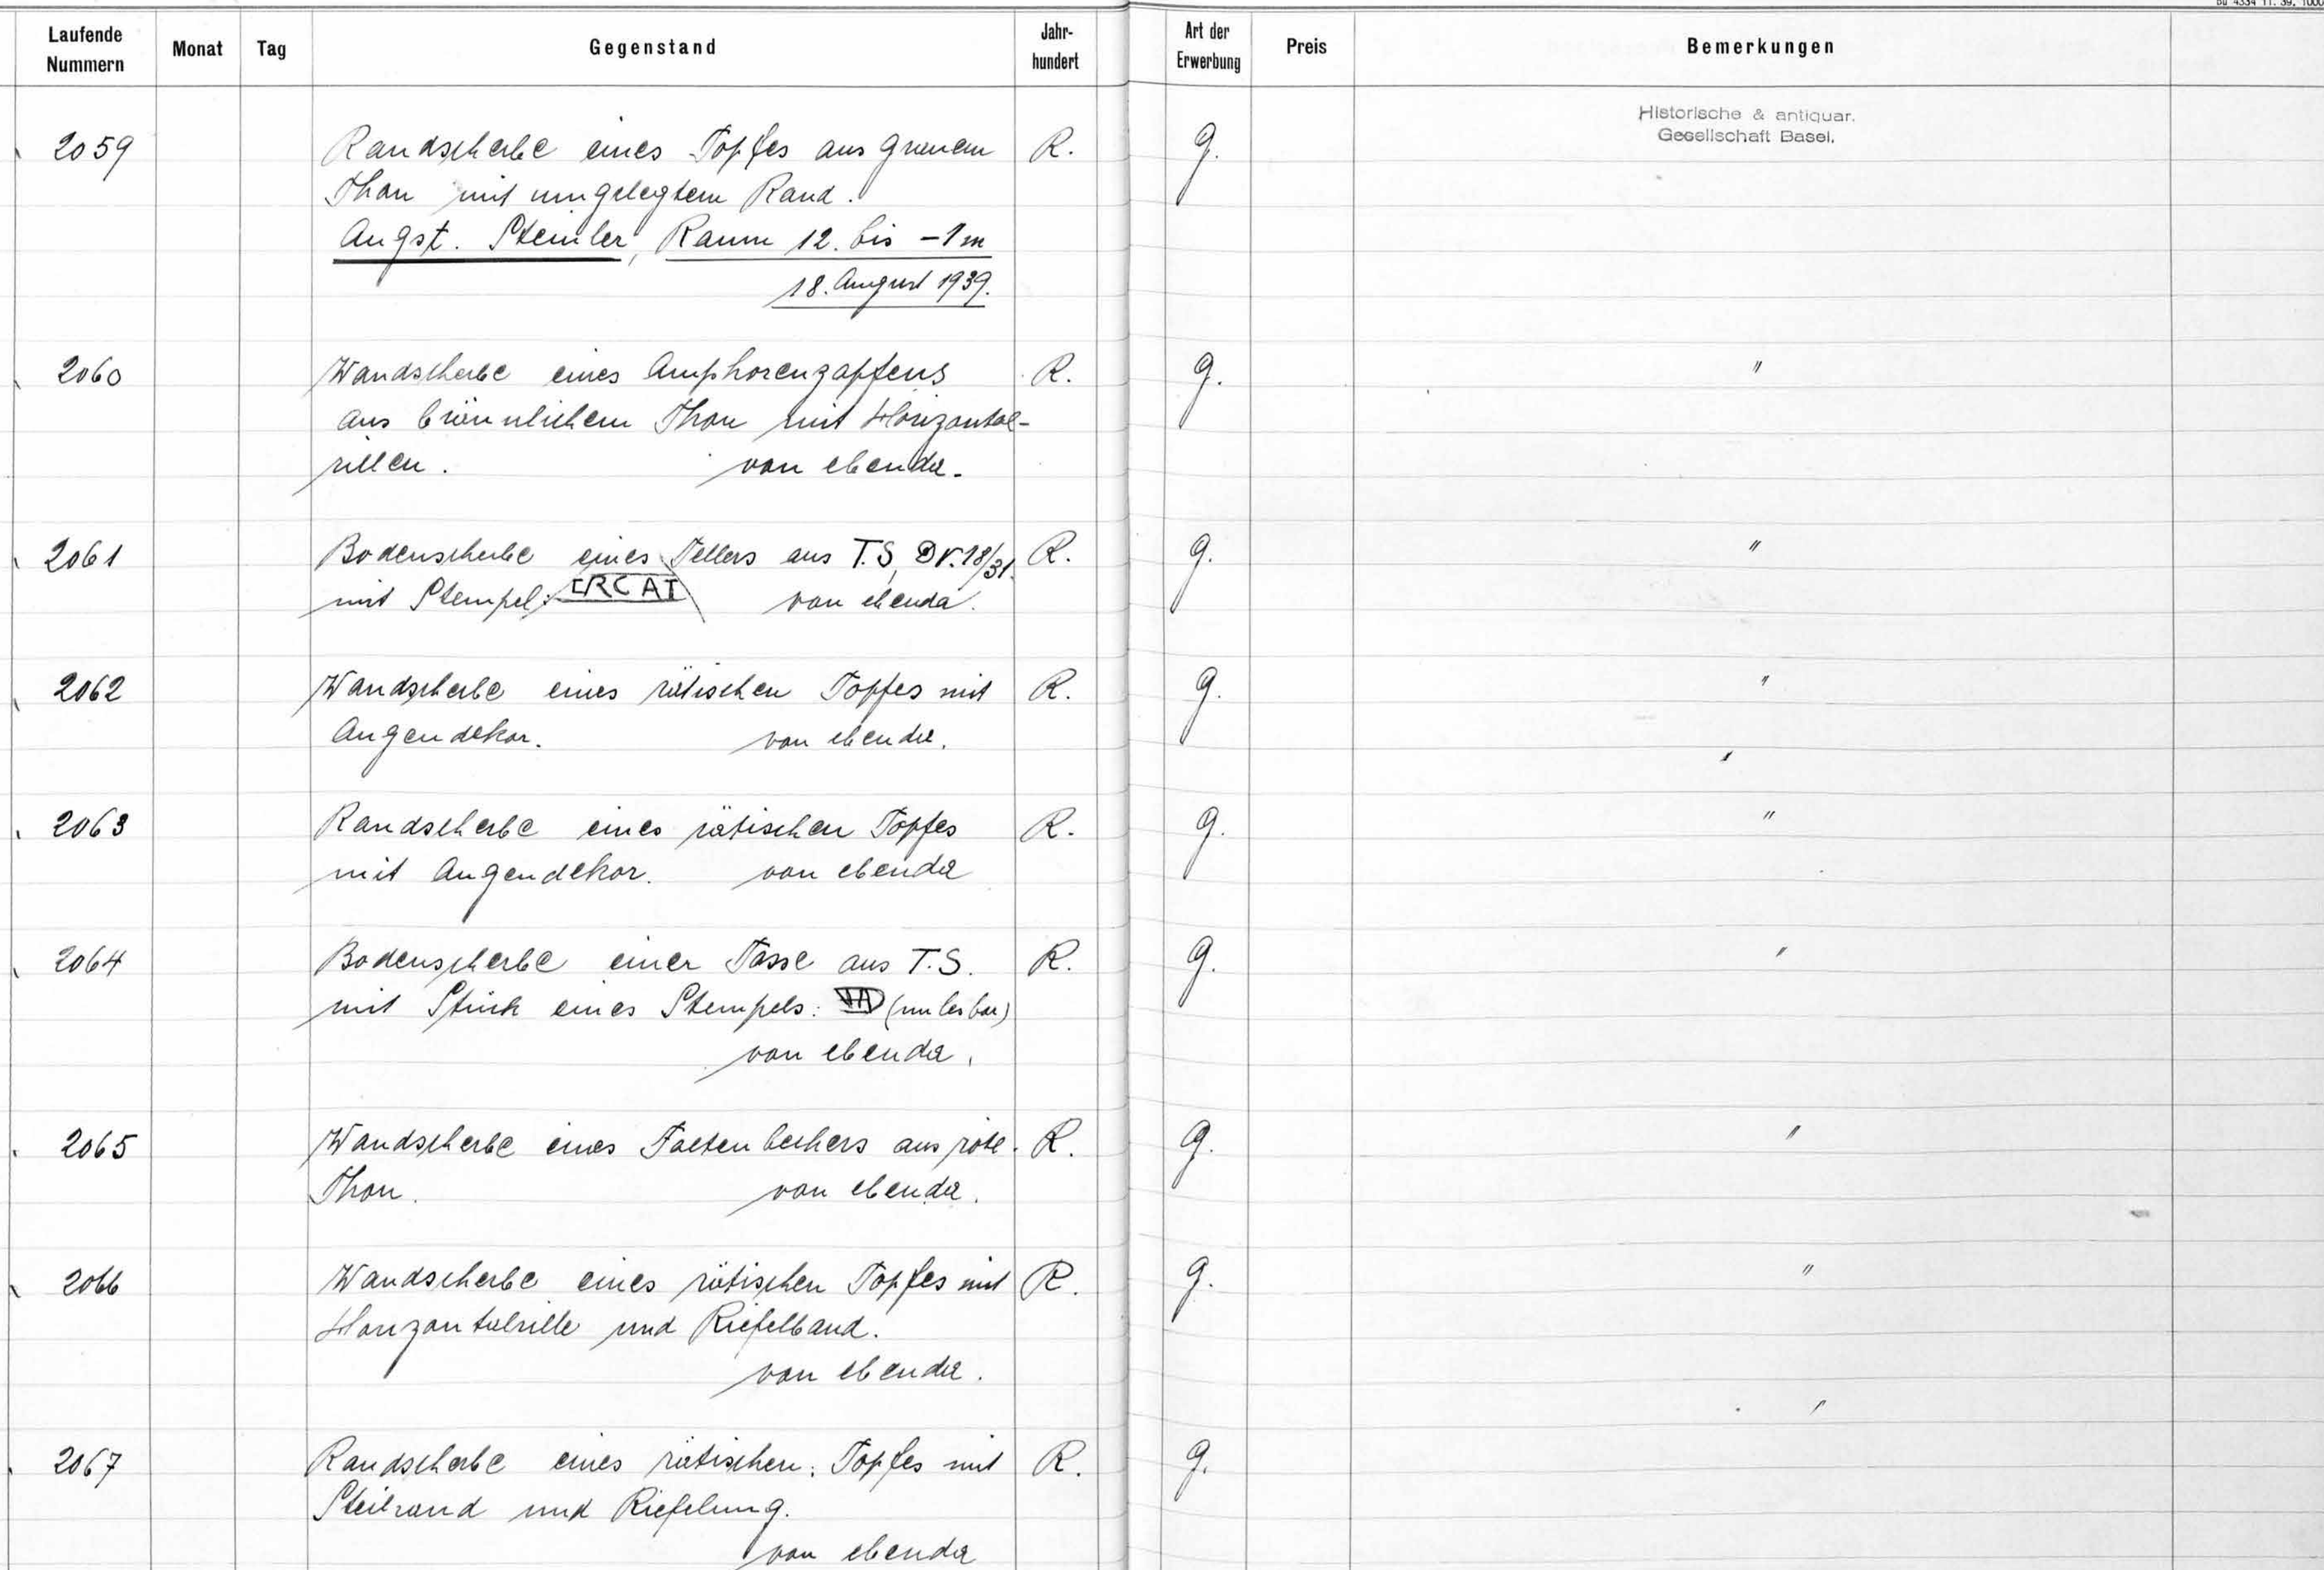 Bu 4334 11. 39. 1000
Laufende Nummern Monat Tag Gegenstand Jahr-hundert Art der Erwerbung Preis Bemerkungen
Historische & antiquar.
Gesellschaft Basel.
2059 Randscherbe eines Topfes aus grauem R. g.
Thon mit umgelegtem Rand.
Augst. Steinler, Raum 12. bis -1 m
18. August 1939.
2060 Wandscherbe eines Amphorenzapfens R. g. "
aus bräunlichem Thon mit Horizontal-
rillen. von ebenda.
2061 Bodenscherbe eines Tellers aus T.S, Dr. 18/31. R. g. "
mit Stempel: von ebenda.
2062 Wandscherbe eines rätischen Topfes mit R. g. "
Augendekor. von ebenda.
2063 Randscherbe eines rätischen Topfes R. g. "
mit Augendekor. von ebenda
2064 Bodenscherbe einer Tasse aus T.S. R. g. "
mit Stück eines Stempels: (unlesbar)
von ebenda.
2065 Wandscherbe eines Faltenbechers aus rote. R. g. "
Thon. von ebenda.
2066 Wandscherbe eines rätischen Topfes mit R. g. "
Horizontalrille und Riefelband.
von ebenda.
2067 Randscherbe eines rätischen Topfes mit R. g. "
Steilrand und Riefelung.
von ebenda